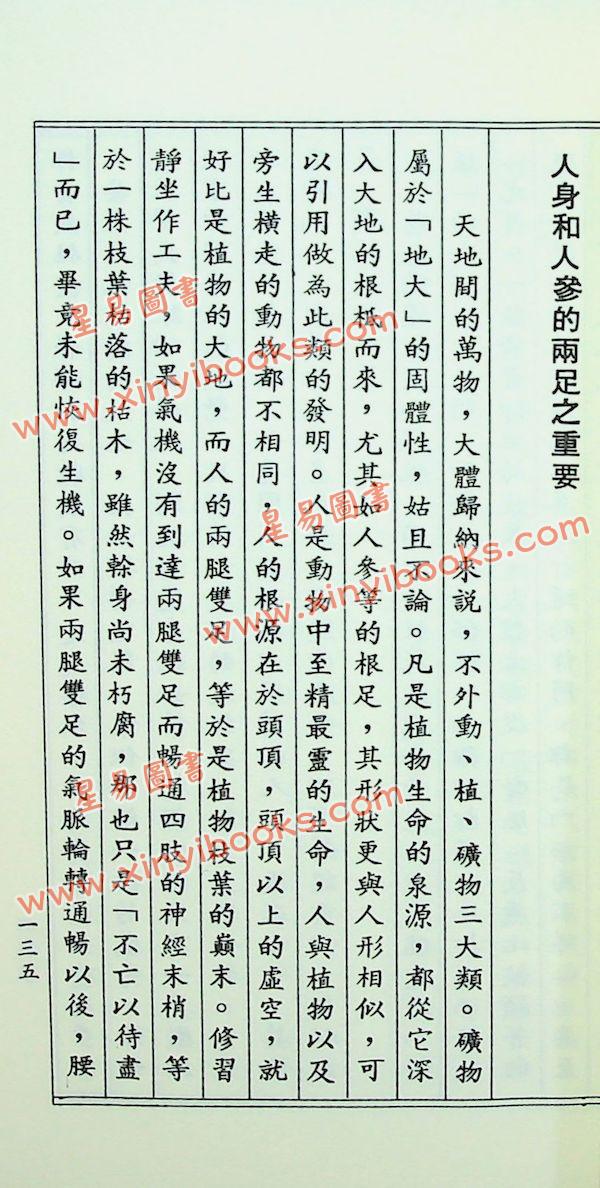 人身和人參的兩足之重要
天地間的萬物，大體歸納來說，不外動、植、礦物三大類。礦物
屬於「地大」的固體性，姑且不論。凡是植物生命的泉源，都從它深
入大地的根柢而來，尤其如人參等的根足，其形狀更與人形相似，可
以引用做為此類的發明。人是動物中至精最靈的生命，人與植物以及
旁生橫走的動物都不相同，人的根源在於頭頂，頭頂以上的虛空，就
好比是植物的大地，而人的兩腿雙足，等於是植物枝葉的巔末。修習
靜坐作工夫，如果氣機沒有到達兩腿雙足而暢通四肢的神經末梢，等
於一株枝葉枯落的枯木，雖然榦身尚未朽腐，那也只是「不亡以待盡
」而已，畢竟未能恢復生機。如果兩腿雙足的氣脈輪轉通暢以後，腰
一三五
星易圖書
www.xinyibooks.com
星易圖書
www.xinyibooks.com
星易圖書
www.xinyibooks.com